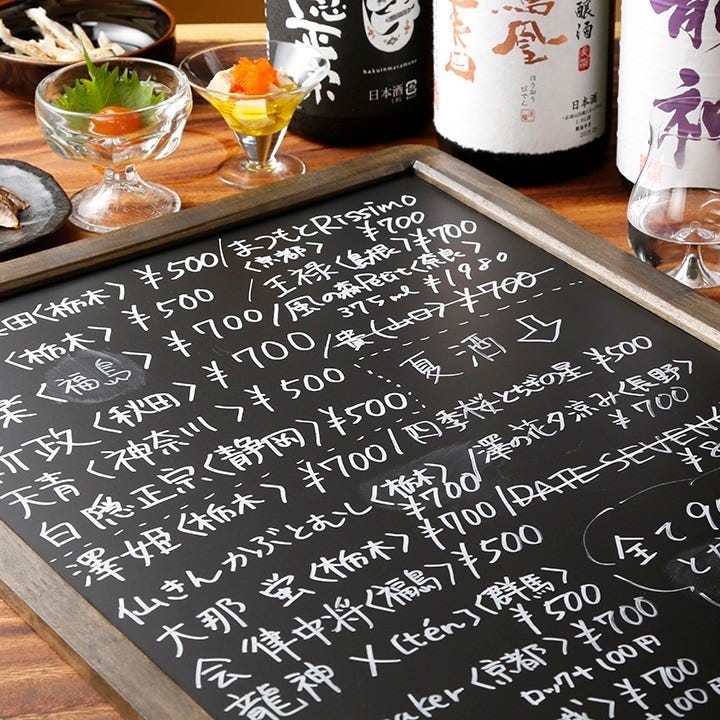 hakuinmasamune
日本酒
1.8L
鳳凰
酔酒
ほうおう
びでん
日本酒
龍神
田〈栃木〉 ¥500/まつもとRissimo
〈京都〉 ¥700
〈栃木〉 ¥500 /王禄〈島根〉¥700
〈福島〉 ¥700/風の森Petit〈奈良〉
375ml ¥1980
新政〈秋田〉 ¥700/貴〈山口〉¥700
天青〈神奈川〉 ¥500
夏酒
白隠正宗〈静岡〉¥500
澤姫〈栃木〉 ¥700/四季桜とちぎの星 ¥500
仙きんかぶとむし〈栃木〉¥700/澤の花夕涼み〈長野〉
¥700
大那 蛍〈栃木〉 ¥700/DATE SEVEN
会津中将〈福島〉 ¥500
全て9
龍神 X[tén]〈群馬〉
¥500
aker〈京都〉 ¥700
ロック+100円
¥700
100円